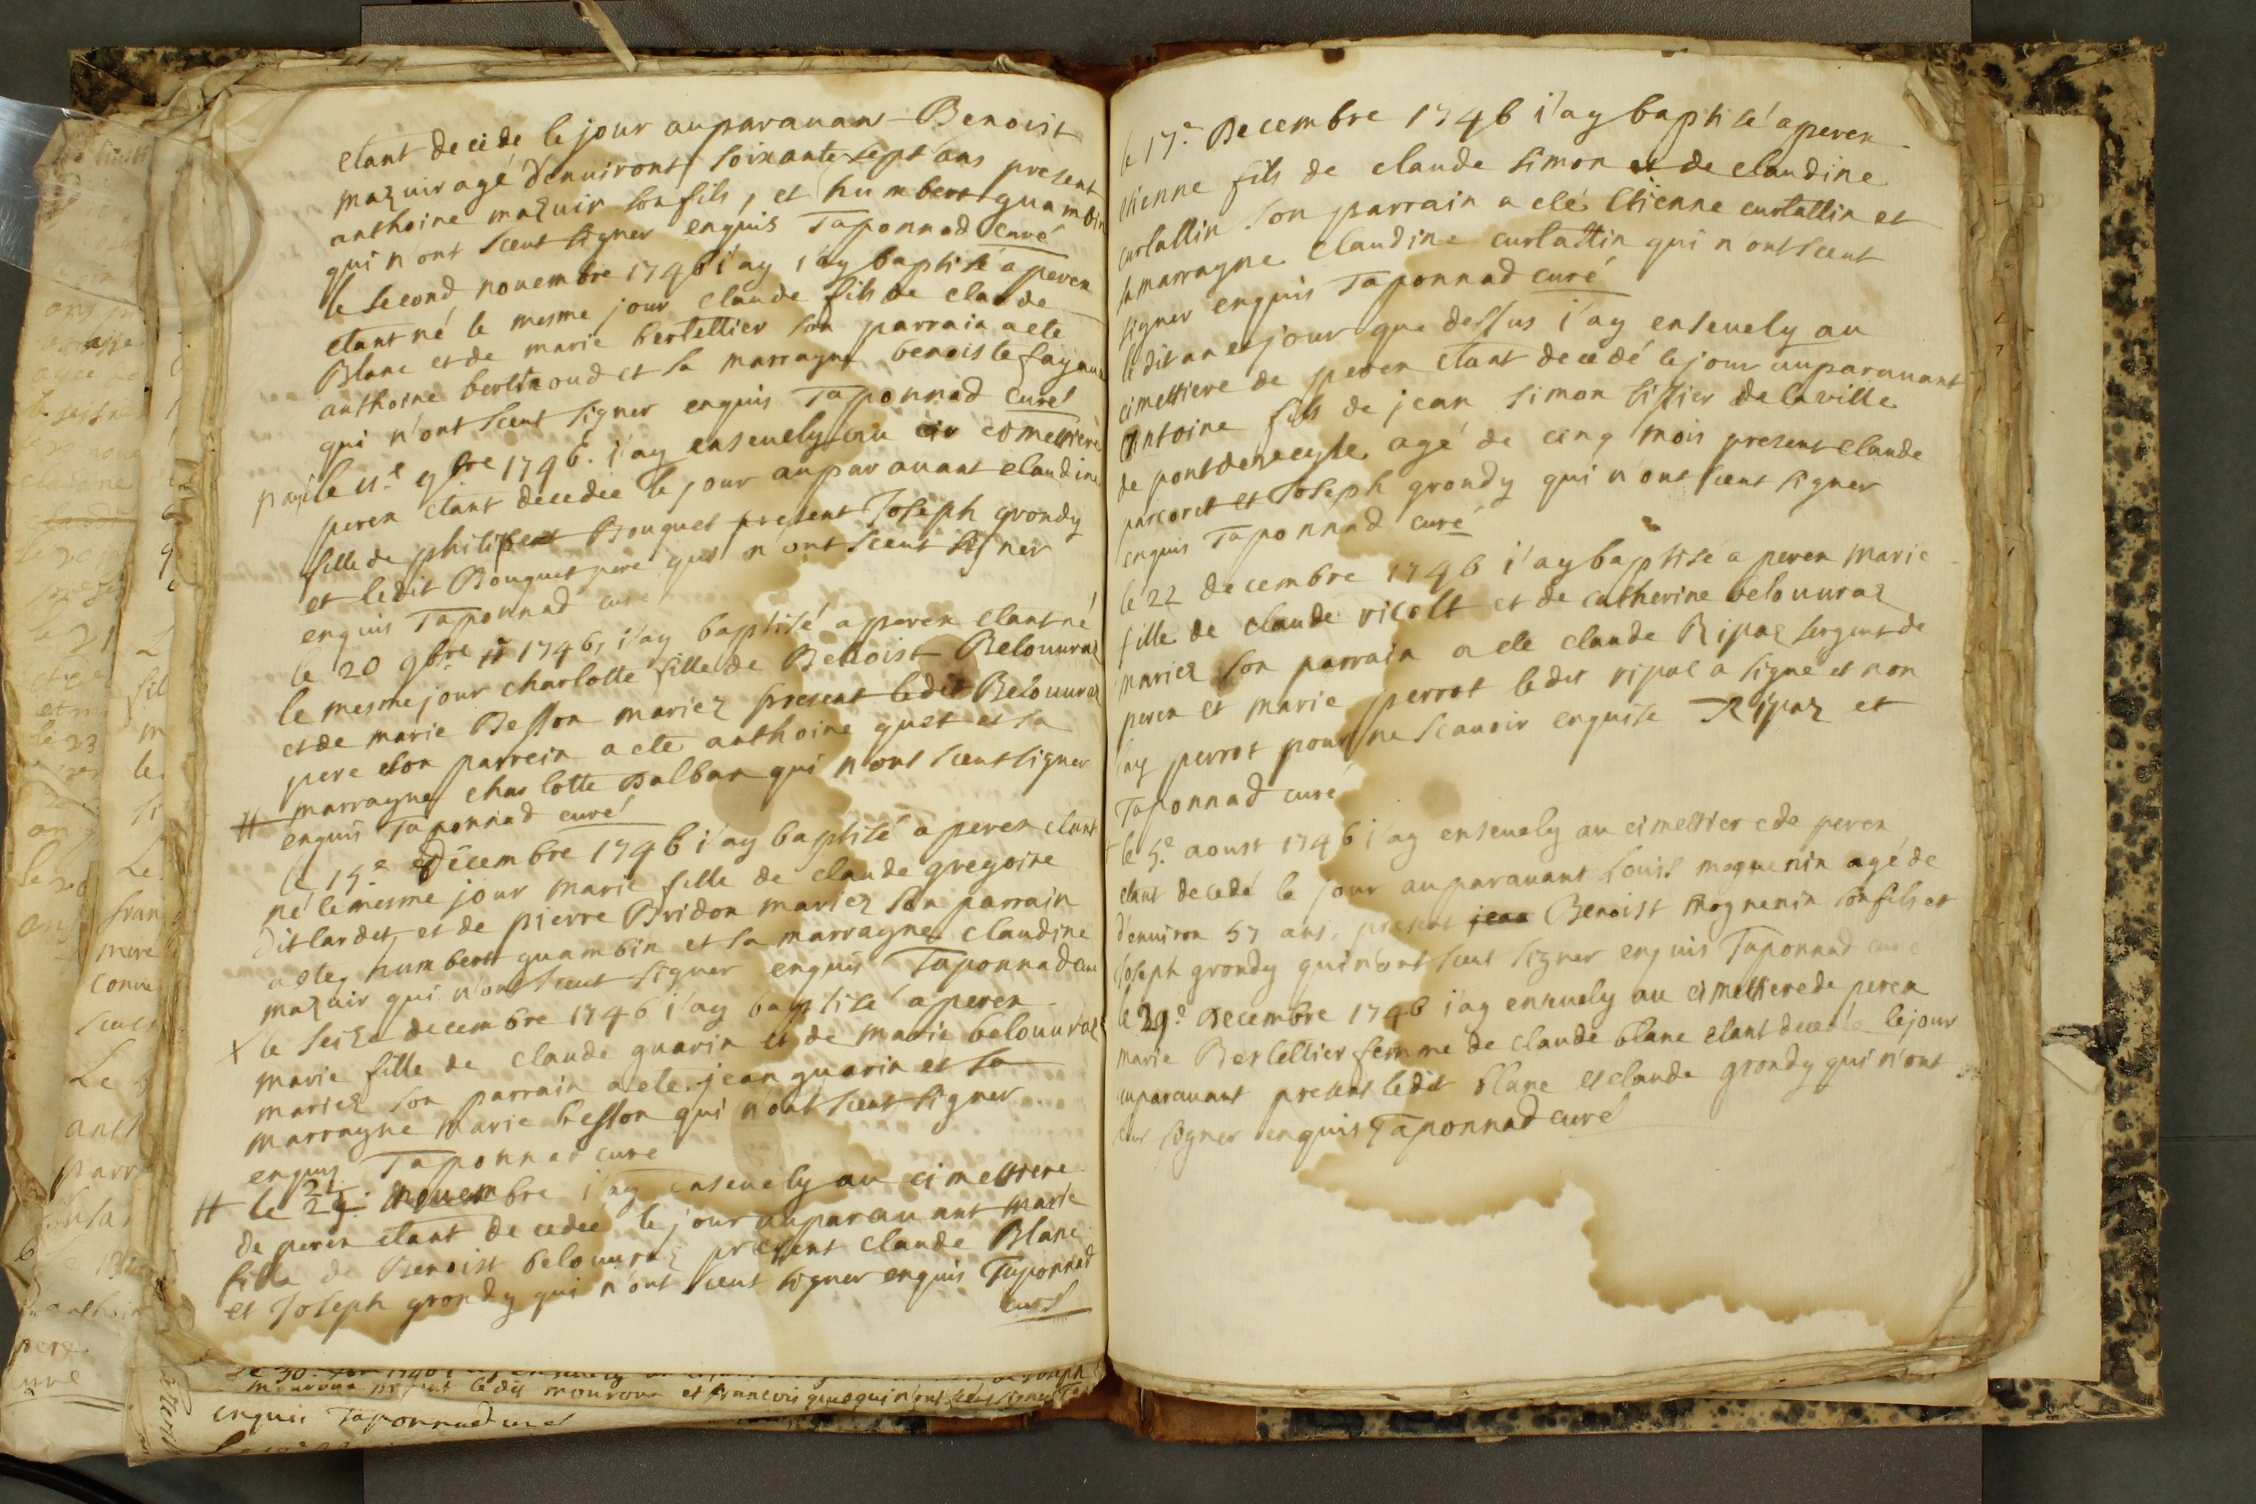 etant decede le jour auparauant Benoist
mazuir agé d'enuiront soixante sept ans present
anthoine mazuir son fils, et humbert guambin
qui n'ont sceut signer enquis Taponnad curé
le second nouembre 1746 i'ay i'ay baptisé a peren
etant né le mesme jour claude fils de claude
Blanc et de marie bertellier son parrain a ete
anthoine bertinoud et sa marrayne benoiste
qui n'ont sceut signer enquis Taponnad curé
le 9bre 1746. i'ay enseuely au cimettiere
peren etant decedee le jour auparauant claudine
fille de philipert Bouquet present Joseph grondy
et ledit Bouquet pere qui n'ont sceut signer
enquis Taponnad curé
le 20 9bre 1746, i'ay baptisé a peren etant né
le mesme jour charlotte fille de Benoist Belouuraz
et de marie Besson mariez present ledit Belouuraz
pere son parrein a ete anthoine guet et sa
# marrayne charlotte Dalban qui n'ont sceut signer
enquis Taponnad curé
le 15.e Decembre 1746 i'ay baptisé a peren etant
né le mesme jour marie fille de claude gregoire
dit lardet, et de pierre Bridon mariez son parrain
a ete, humbert guambin et sa marrayne claudine
mazuir qui n'ont sceut signer enquis Taponnad cur
X le seize decembre 1746 i'ay baptisé a peren
marie fille de claude guarin et de marie belouuraz
mariez son parrain a ete jean guarin et sa
marrayne marie besson qui n'ont sceut signer
enquis Taponnad curé
# le nouembre i'ay enseuely au cimettiere
de peren etant decedee le jour auparauant marie
fille de Benoist belouuraz present claude Blanc
et Joseph grondy qui n'ont sceut signer enquis Taponnad
curé
mouroux present ledit mouroux et francois qui n'ont sceut signer
enquis Taponnad curé
le 17.e Decembre 1746 i'ay baptisé a peren
etienne fils de claude simon et de claudine
curtattin. son parrain a eté etienne curtattin et
sa marrayne claudine curtattin qui n'ont sceut
signer enquis Taponnad curé
le dit an et jour que dessus i'ay enseuely au
cimettiere de peren etant decedé le jour auparauant
Antoine fils de jean simon tissier de la ville
de pontdeuecyle agé de cinq mois present claude
parcoret et Joseph grondy qui n'ont sceut signer
enquis Taponnad curé
le 22 decembre 1746 i'ay baptisé a peren marie
fille de claude ricolt et de catherine belouuraz
mariez son parrain a ete claude Ripaz sergent de
peren et marie perrot ledit ripaz a signe et non
lay perrot pour ne scauoir enquise Ripaz et
Taponnad curé
le 5.e aoust 1746 i'ay enseuely au cimettiere de peren
etant decedé le jour auparauant louis mognenin agé de
d'enuiron 57 ans, present jean Benoist mognenin son fils et
Joseph grondy qui n'ont sceut signer enquis Taponnad curé
le 29.e Decembre 1746 i'ay enseuely au cimettiere de peren
marie Bertellier femme de claude blanc etant decedée le jour
auparauant present ledit blanc et claude grondy qui n'ont
sceut signer enquis Taponnad curé